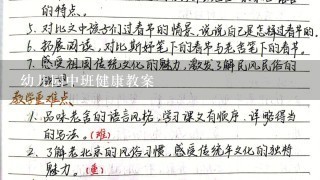 的特点。
5. 对比文中孩子们过春节的情景,说说自己是怎样过春节的。
6. 拓展阅读,对比斯好笔下的春节与老舍笔下的春节。
7. 感受祖国传统文化的魅力,激发了解民风民俗的
幼儿园中班健康教案
教学重难点
1. 品味老舍的语言风格,学习课文有顺序、详略得当
的写法。(难)
2. 了解老北京的风俗习惯,感受传统年文化的独特
魅力。(重)